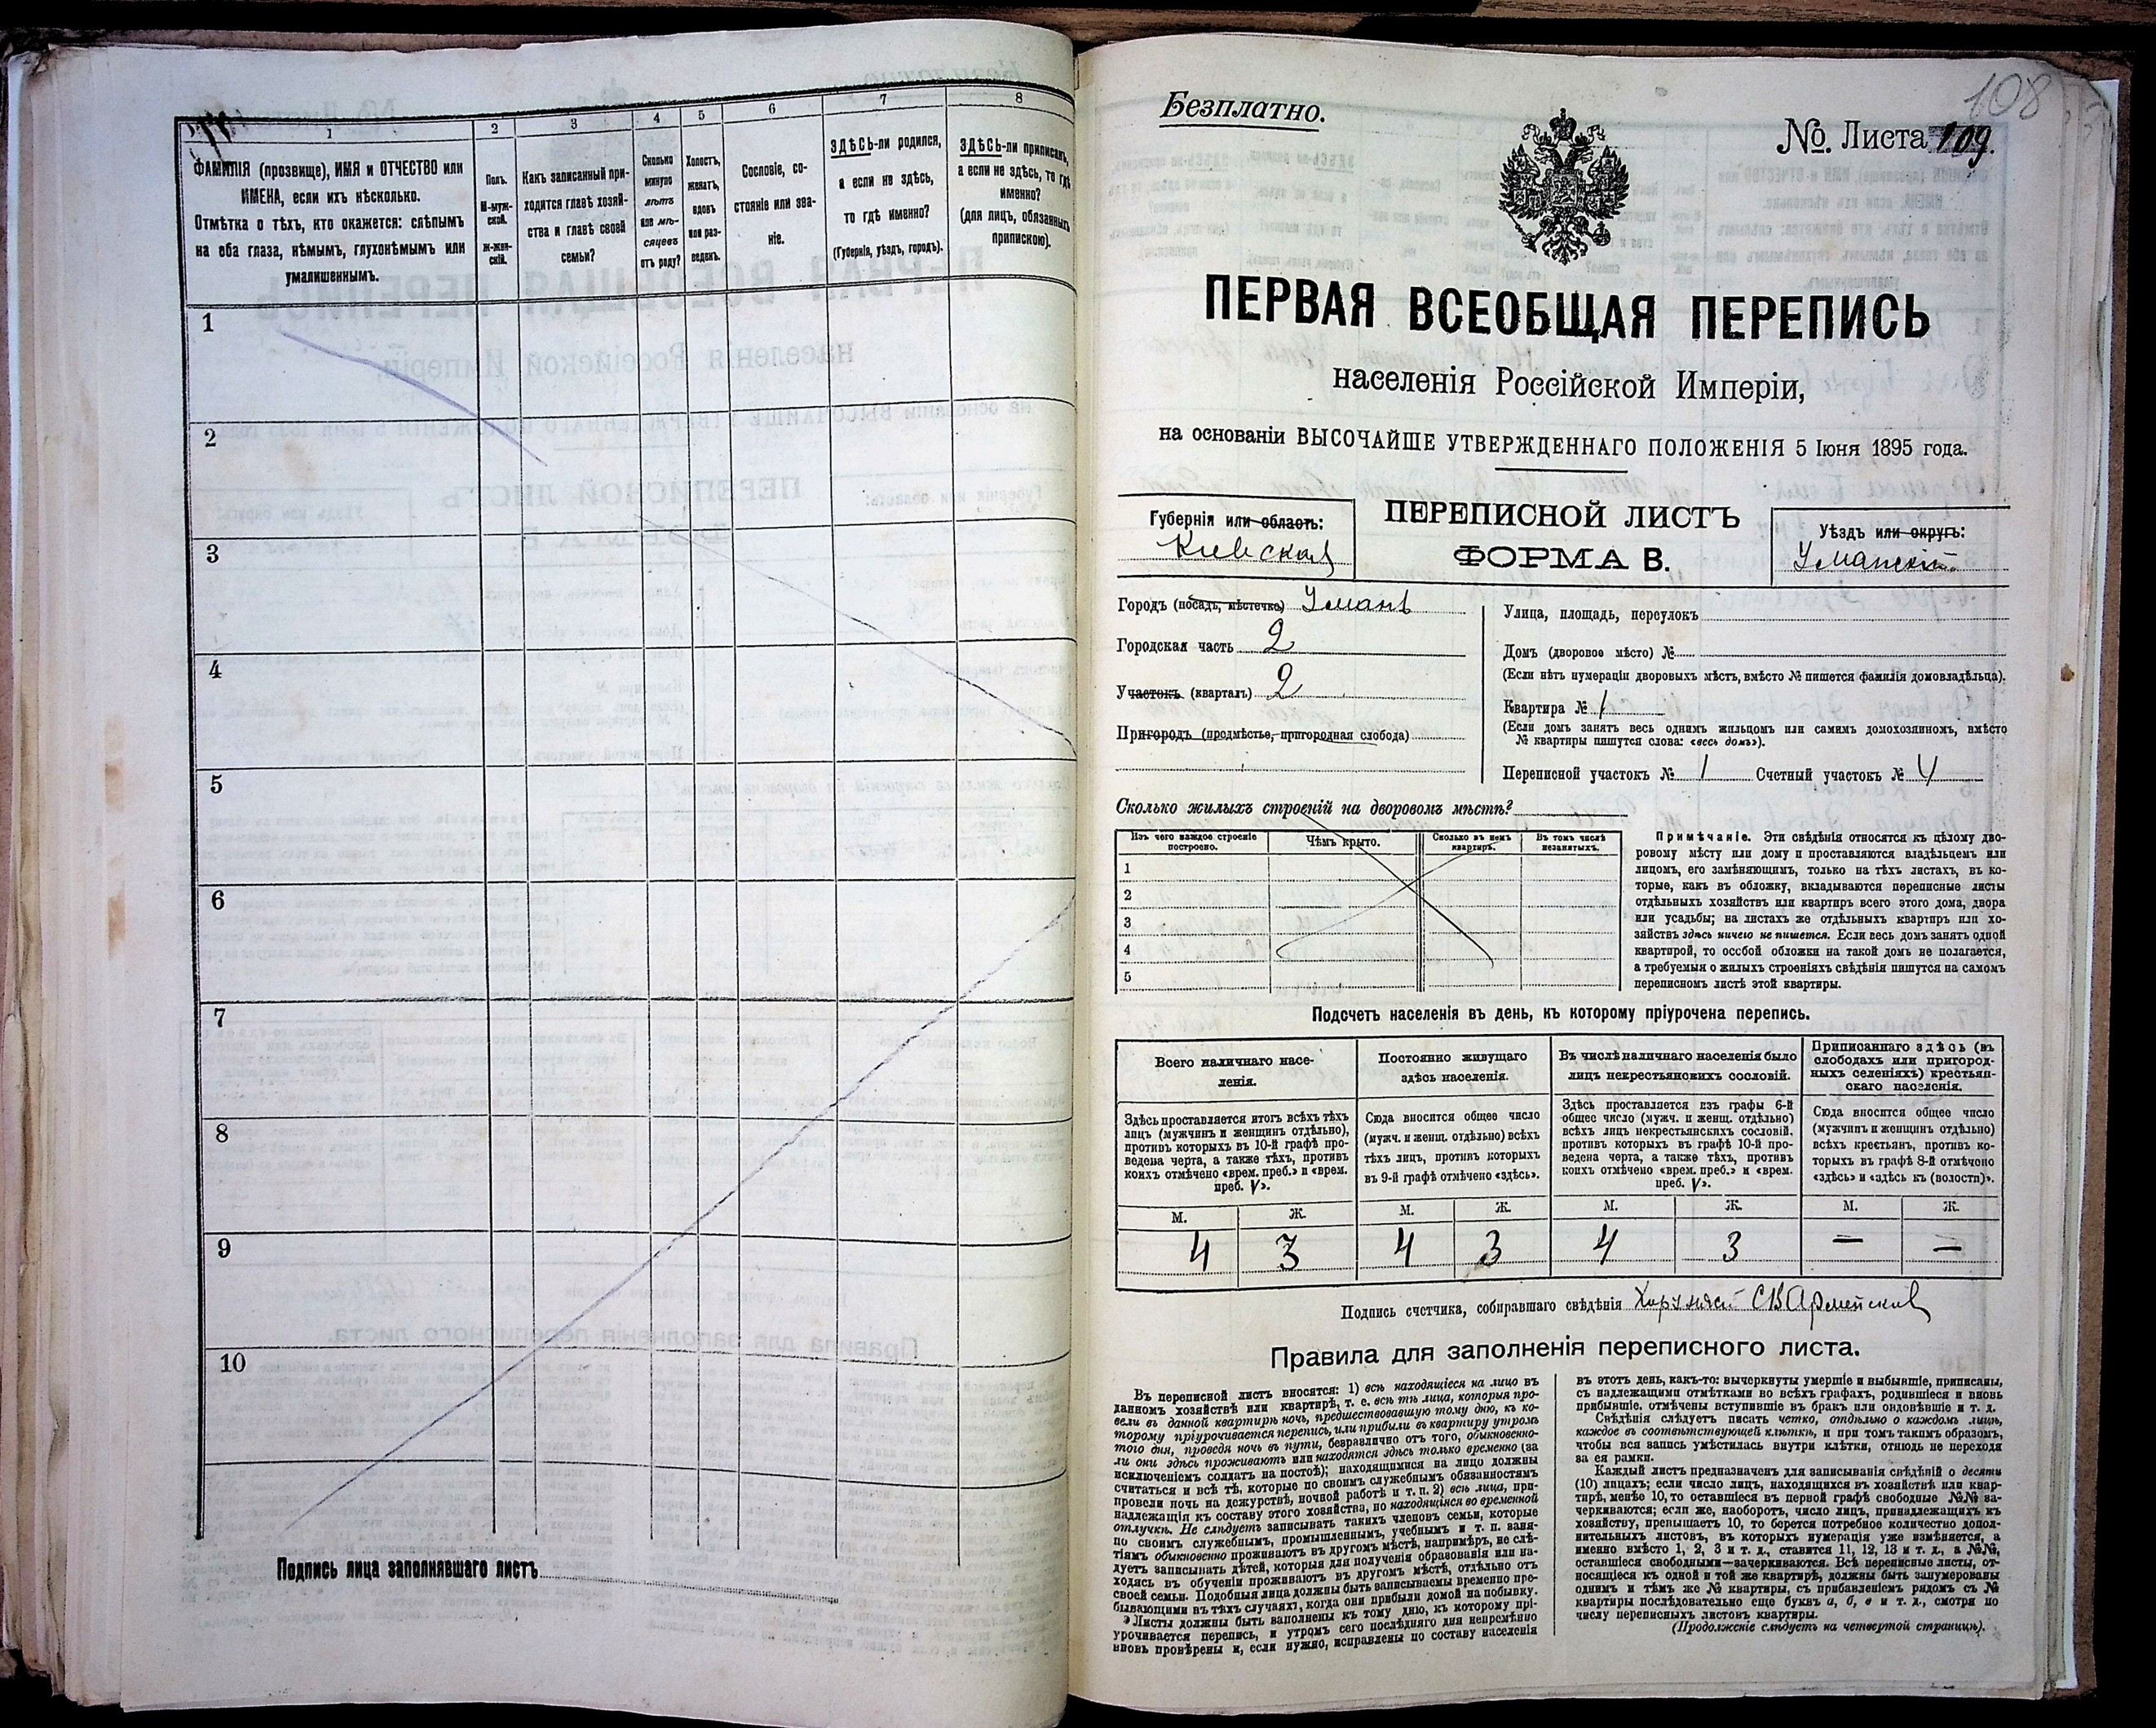 1
2
3
4
5
6
7
8
ФАМИЛІЯ (прозвище), ИМЯ и ОТЧЕСТВО или
ИМЕНА, если ихъ нѣсколько.
Отмѣтка о тѣхъ, кто окажется: слѣпымъ
на оба глаза, нѣмымъ, глухонѣмымъ или
умалишеннымъ.
Полъ.
М-муж-
ской.
ж-жен-
скій.
Какъ записанный при-
ходится главѣ хозяй-
ства и главѣ своей
семьи?
Сколько
минуло
лѣтъ
или мѣ-
сяцевъ
отъ роду?
Холостъ,
женатъ,
вдовъ
или раз-
веденъ.
Сословіе, со-
стояніе или зва-
ніе.
ЗДѢСЬ-ли родился,
а если не здѣсь,
то гдѣ именно?
(Губернія, уѣздъ, городъ).
ЗДѢСЬ-ли приписанъ,
а если не здѣсь, то гдѣ
именно?
(для лицъ, обязанныхъ
припискою).
1
2
3
4
5
6
7
8
9
10
Подпись лица заполнявшаго листъ
108
Безплатно.
№. Листа 109.
ПЕРВАЯ ВСЕОБЩАЯ ПЕРЕПИСЬ
населенія Россійской Имперіи,
на основаніи ВЫСОЧАЙШЕ УТВЕРЖДЕННАГО ПОЛОЖЕНІЯ 5 Іюня 1895 года.
Губернія или область:
Кіевская
ПЕРЕПИСНОЙ ЛИСТЪ
ФОРМА В.
Уѣздъ или округъ:
Уманскій
Городъ (посадъ, мѣстечко) Умань
Городская часть 2
Участокъ (кварталъ) 2
Пригородъ (предмѣстье, пригородная слобода)
Улица, площадь, переулокъ
Домъ (дворовое мѣсто) №
(Если нѣтъ нумераціи дворовыхъ мѣстъ, вмѣсто № пишется фамилія домовладѣльца).
Квартира № 1
(Если домъ занятъ весь однимъ жильцомъ или самимъ домохозяиномъ, вмѣсто
№ квартиры пишутся слова: «весь домъ»).
Переписной участокъ № 1 Счетный участокъ № 4
Сколько жилыхъ строеній на дворовомъ мѣстѣ?
Изъ чего каждое строеніе
построено.
Чѣмъ крыто.
Сколько въ немъ
квартиръ.
Въ томъ числѣ
незанятыхъ.
1
2
3
4
5
Примѣчаніе. Эти свѣдѣнія относятся къ цѣлому дво-
ровому мѣсту или дому и проставляются владѣльцемъ или
лицомъ, его замѣняющимъ, только на тѣхъ листахъ, въ ко-
торые, какъ въ обложку, вкладываются переписные листы
отдѣльныхъ хозяйствъ или квартиръ всего этого дома, двора
или усадьбы; на листахъ же отдѣльныхъ квартиръ или хо-
зяйствъ здѣсь ничего не пишется. Если весь домъ занятъ одной
квартирой, то особой обложки на такой домъ не полагается,
а требуемыя о жилыхъ строеніяхъ свѣдѣнія пишутся на самомъ
переписномъ листѣ этой квартиры.
Подсчетъ населенія въ день, къ которому пріурочена перепись.
Всего наличнаго насе-
ленія.
Постоянно живущаго
здѣсь населенія.
Въ числѣ наличнаго населенія было
лицъ некрестьянскихъ сословій.
Приписаннаго здѣсь (въ
слободахъ или пригород-
ныхъ селеніяхъ) крестьян-
скаго населенія.
Здѣсь проставляется итогъ всѣхъ тѣхъ
лицъ (мужчинъ и женщинъ отдѣльно),
противъ которыхъ въ 10-й графѣ про-
ведена черта, а также тѣхъ, противъ
коихъ отмѣчено «врем. преб.» и «врем.
преб. V».
Сюда вносится общее число
(мужч. и женщ. отдѣльно) всѣхъ
тѣхъ лицъ, противъ которыхъ
въ 9-й графѣ отмѣчено «здѣсь».
Здѣсь проставляется изъ графы 6-й
общее число (мужч. и женщ. отдѣльно)
всѣхъ лицъ некрестьянскихъ сословій,
противъ которыхъ въ графѣ 10-й про-
ведена черта, а также тѣхъ, противъ
коихъ отмѣчено «врем. преб.» и «врем.
преб. V».
Сюда вносится общее число
(мужчинъ и женщинъ отдѣльно)
всѣхъ крестьянъ, противъ ко-
торыхъ въ графѣ 8-й отмѣчено
«здѣсь» и «здѣсь къ (волости)».
М. Ж. М. Ж. М. Ж. М. Ж.
4 3 4 3 4 3 — —
Подпись счетчика, собиравшаго свѣдѣнія
Правила для заполненія переписного листа.
Въ переписной листъ вносятся: 1) всѣ находящіеся на лицо въ
данномъ хозяйствѣ или квартирѣ, т. е. всѣ тѣ лица, которыя про-
вели въ данной квартирѣ ночь, предшествовавшую тому дню, къ ко-
торому пріурочивается перепись, или прибыли въ квартиру утромъ
того дня, проведя ночь въ пути, безразлично отъ того, обыкновенно-
ли они здѣсь проживаютъ или находятся здѣсь только временно (за
исключеніемъ солдатъ на постоѣ); находящимися на лицо должны
считаться и всѣ тѣ, которые по своимъ служебнымъ обязанностямъ
провели ночь на дежурствѣ, ночной работѣ и т. п. 2) всѣ лица, при-
надлежащія къ составу этого хозяйства, но находящіяся во временной
отлучкѣ. Не слѣдуетъ записывать такихъ членовъ семьи, которые
по своимъ служебнымъ, промышленнымъ, учебнымъ и т. п. заня-
тіямъ обыкновенно проживаютъ въ другомъ мѣстѣ, напримѣръ, не слѣ-
дуетъ записывать дѣтей, которыя для полученія образованія или на-
ходясь въ обученіи проживаютъ въ другомъ мѣстѣ, отдѣльно отъ
своей семьи. Подобныя лица должны быть записываемы временно пре-
бывающими въ тѣхъ случаяхъ, когда они прибыли домой на побывку.
Листы должны быть заполнены къ тому дню, къ которому прі-
урочивается перепись, и утромъ сего послѣдняго дня непремѣнно
вновь провѣрены и, если нужно, исправлены по составу населенія
въ этотъ день, какъ-то: вычеркнуты умершіе и выбывшіе, приписаны,
съ надлежащими отмѣтками во всѣхъ графахъ, родившіеся и вновь
прибывшіе, отмѣчены вступившіе въ бракъ или овдовѣвшіе и т. д.
Свѣдѣнія слѣдуетъ писать четко, отдѣльно о каждомъ лицѣ,
каждое въ соотвѣтствующей клѣткѣ, и при томъ такимъ образомъ,
чтобы вся запись умѣстилась внутри клѣтки, отнюдь не переходя
за ея рамки.
Каждый листъ предназначенъ для записыванія свѣдѣній о десяти
(10) лицахъ; если число лицъ, находящихся въ хозяйствѣ или квар-
тирѣ, менѣе 10, то оставшіеся въ первой графѣ свободные №№ за-
черкиваются; если же, наоборотъ, число лицъ, принадлежащихъ къ
хозяйству, превышаетъ 10, то берется потребное количество допол-
нительныхъ листовъ, въ которыхъ нумерація уже измѣняется, а
именно вмѣсто 1, 2, 3 и т. д., ставится 11, 12, 13 и т. д., а №№,
оставшіеся свободными—зачеркиваются. Всѣ переписные листы, от-
носящіеся къ одной и той же квартирѣ, должны быть занумерованы
однимъ и тѣмъ же № квартиры, съ прибавленіемъ рядомъ съ №
квартиры послѣдовательно еще буквъ а, б, в и т. д., смотря по
числу переписныхъ листовъ квартиры.
(Продолженіе слѣдуетъ на четвертой страницѣ).